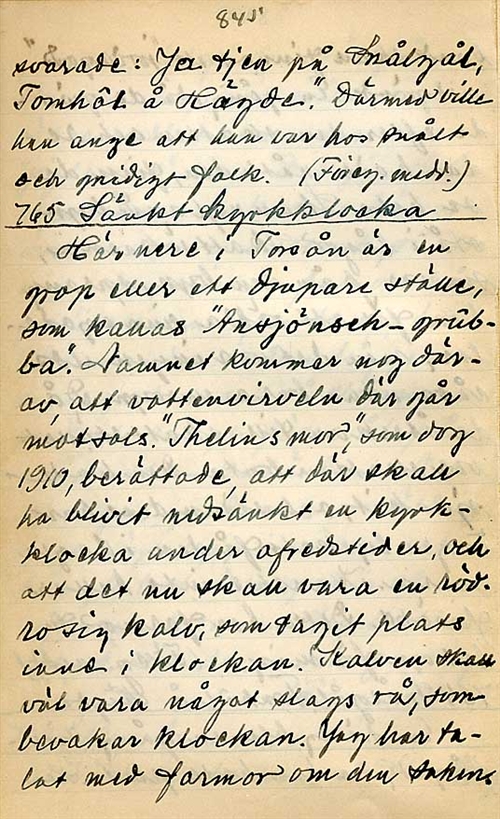 845
svarade: "Ja tjen på Snålgål,
Tomhôl å Hägde." Därmed ville
hun ange att hun var hos snålt
och gnidigt folk. (Föreg. medd.)
765 Sänkt kyrkklocka
Här nere i Torsån är en
grop eller ett djupare ställe,
som kallas "Ansjönsch-grûb-
ba". Namnet kommer nog där-
av, att vattenvirveln där går
motsols. "Thelins mor", som dog
1910, berättade, att där skall
ha blivit nedsänkt en kyrk-
klocka under ofredstider, och
att det nu skall vara en röd-
rosig kalv, som tagit plats
inne i klockan. Kalven skall
väl vara något slags rå, som
bevakar klockan. Jag har ta-
lat med farmor om den saken.